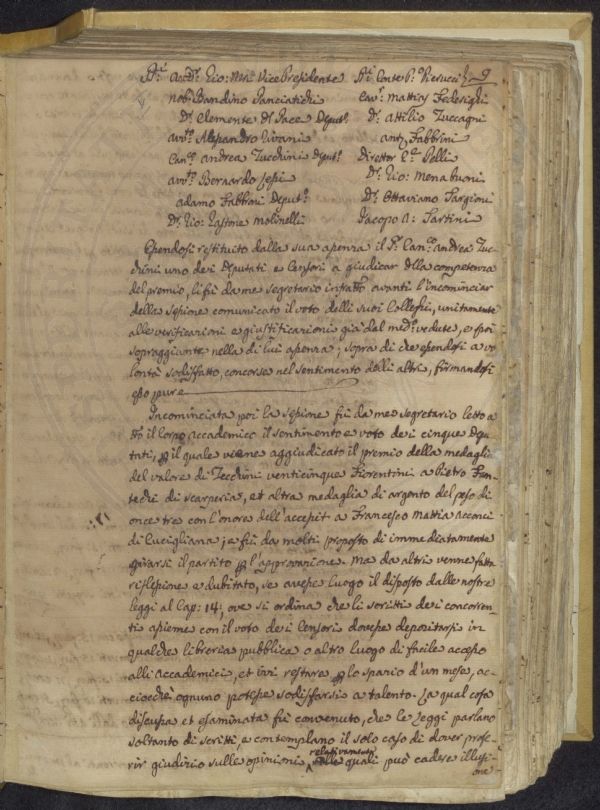 SS.ri avv.to Gio: Neri Vice Presidente
nob: Bandino Panciatichi
D.r Clemente Del Pace Deput.o
avv.to Alessandro Rivani
Can.co andrea Zucchini Deput.o
avv.to Bernardo Lessi
adamo Fabbroni Deput.o
D.r Gio: Gastone Molinelli
SS.ri Conte P.o Pierucci
9
Cav.r Mattias Federighi
D.r attilio Zuccagni
ant.o Fabbrini
Direttor Pelli
D.r Gio: Menabuoni
D.r Ottaviano Targioni
Jacopo A: Tartini
Essendosi restituito dalla sua assenza il S.r Can.co andrea Zuc-
chini uno dei Deputati e Censori a giudicar della competenza
del premio, li fù da me segretario infratto avanti l'incominciar
della sessione comunicato il voto delli suoi Colleghi, unitamente
alle verificazioni e giustificazioni già dal med.o vedute, e poi
sopraggiunte nella di lui assenza; sopra di che essendosi a vo
lontà sodisfatto, concorse nel sentimento delli altri, firmandosi
esso pure
Incominciata poi la sessione fù da me segretario letto a
tto il Corpo accademico il sentimento e voto dei cinque Depu
tati, per il quale viene aggiudicato il premio della medaglia
del valore di Zecchini venticinque Fiorentini a Pietro Fan-
techi di scarperia, et altra medaglia di argento del peso di
once tre con l'onore dell'accessit a Francesco Mattia acconci
di Cucigliana; e fù da molti proposto di immediatamente
girarsi il partito per l'approvazione. Ma da altri venne fatta
riflessione e dubitato, se avesse luogo il disposto dalle nostre
leggi al Cap: 14, ove si ordina che li scritti dei concorren
ti assieme con il voto dei Censori dovesse depositarsi in
qualche libreria pubblica o altro luogo di facile accesso
alli accademici, et ivi restare per lo spazio d'un mese, ac-
ciocchè ognuno potesse sodisfarsi a talento. La qual cosa
discussa et esaminata fù convenuto, che le Leggi parlano
soltanto di scritti, e contemplano il solo caso di dover profe-
rir giudizio sulle opinioni, relativamente alle quali può cadere illusi-
one